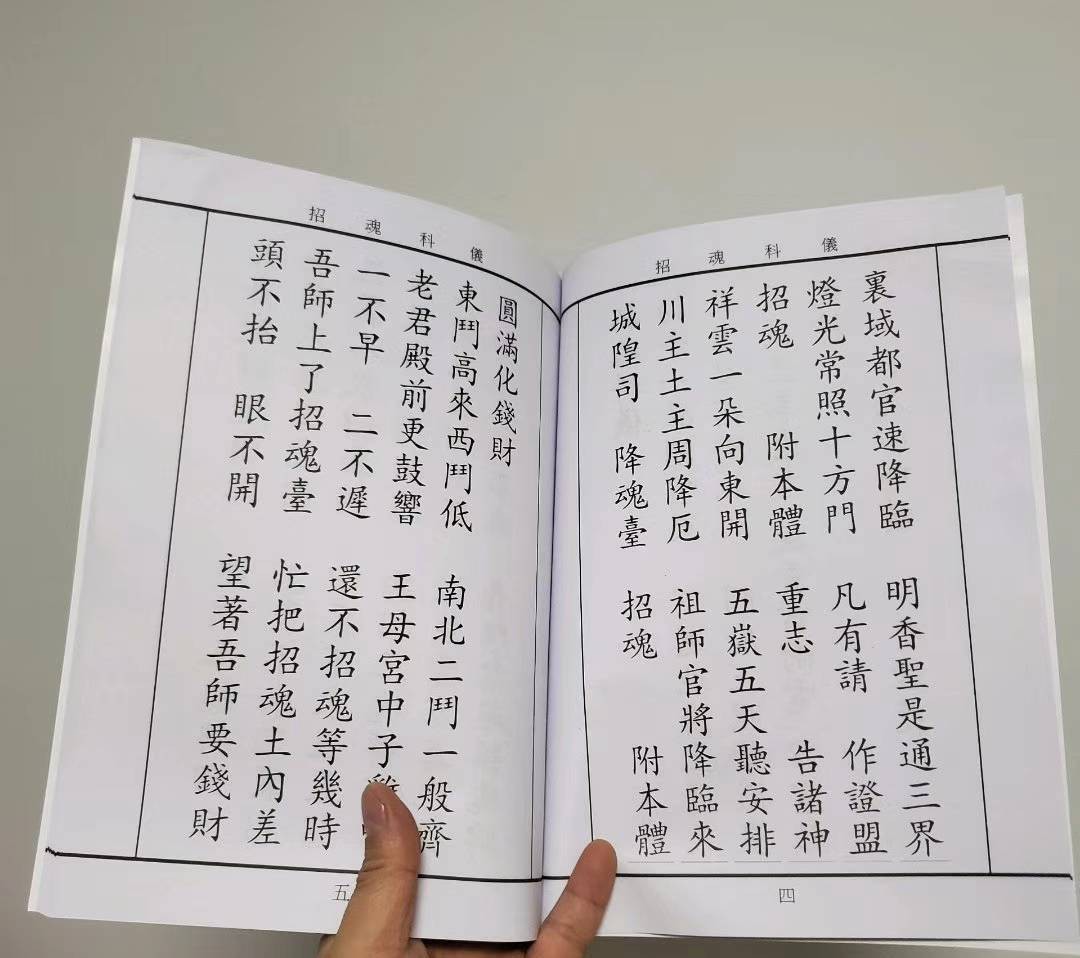 招魂科儀
裏域都官速降臨 明香聖是通三界
燈光常照十方門 凡有請 作證盟
招魂 附本體 重志 告諸神
祥雲一朵向東開 五嶽五天聽安排
川主土主周降厄 祖師官將降臨來
城隍司 降魂臺 招魂 附本體
四
招魂科儀
圓滿化錢財
東鬥高來西鬥低 南北二鬥一般齊
老君殿前更鼓響 王母宮中子
一不早 二不遲 還不招魂等幾時
吾師上了招魂臺 忙把招魂土內差
頭不抬 眼不開 望著吾師要錢財
五